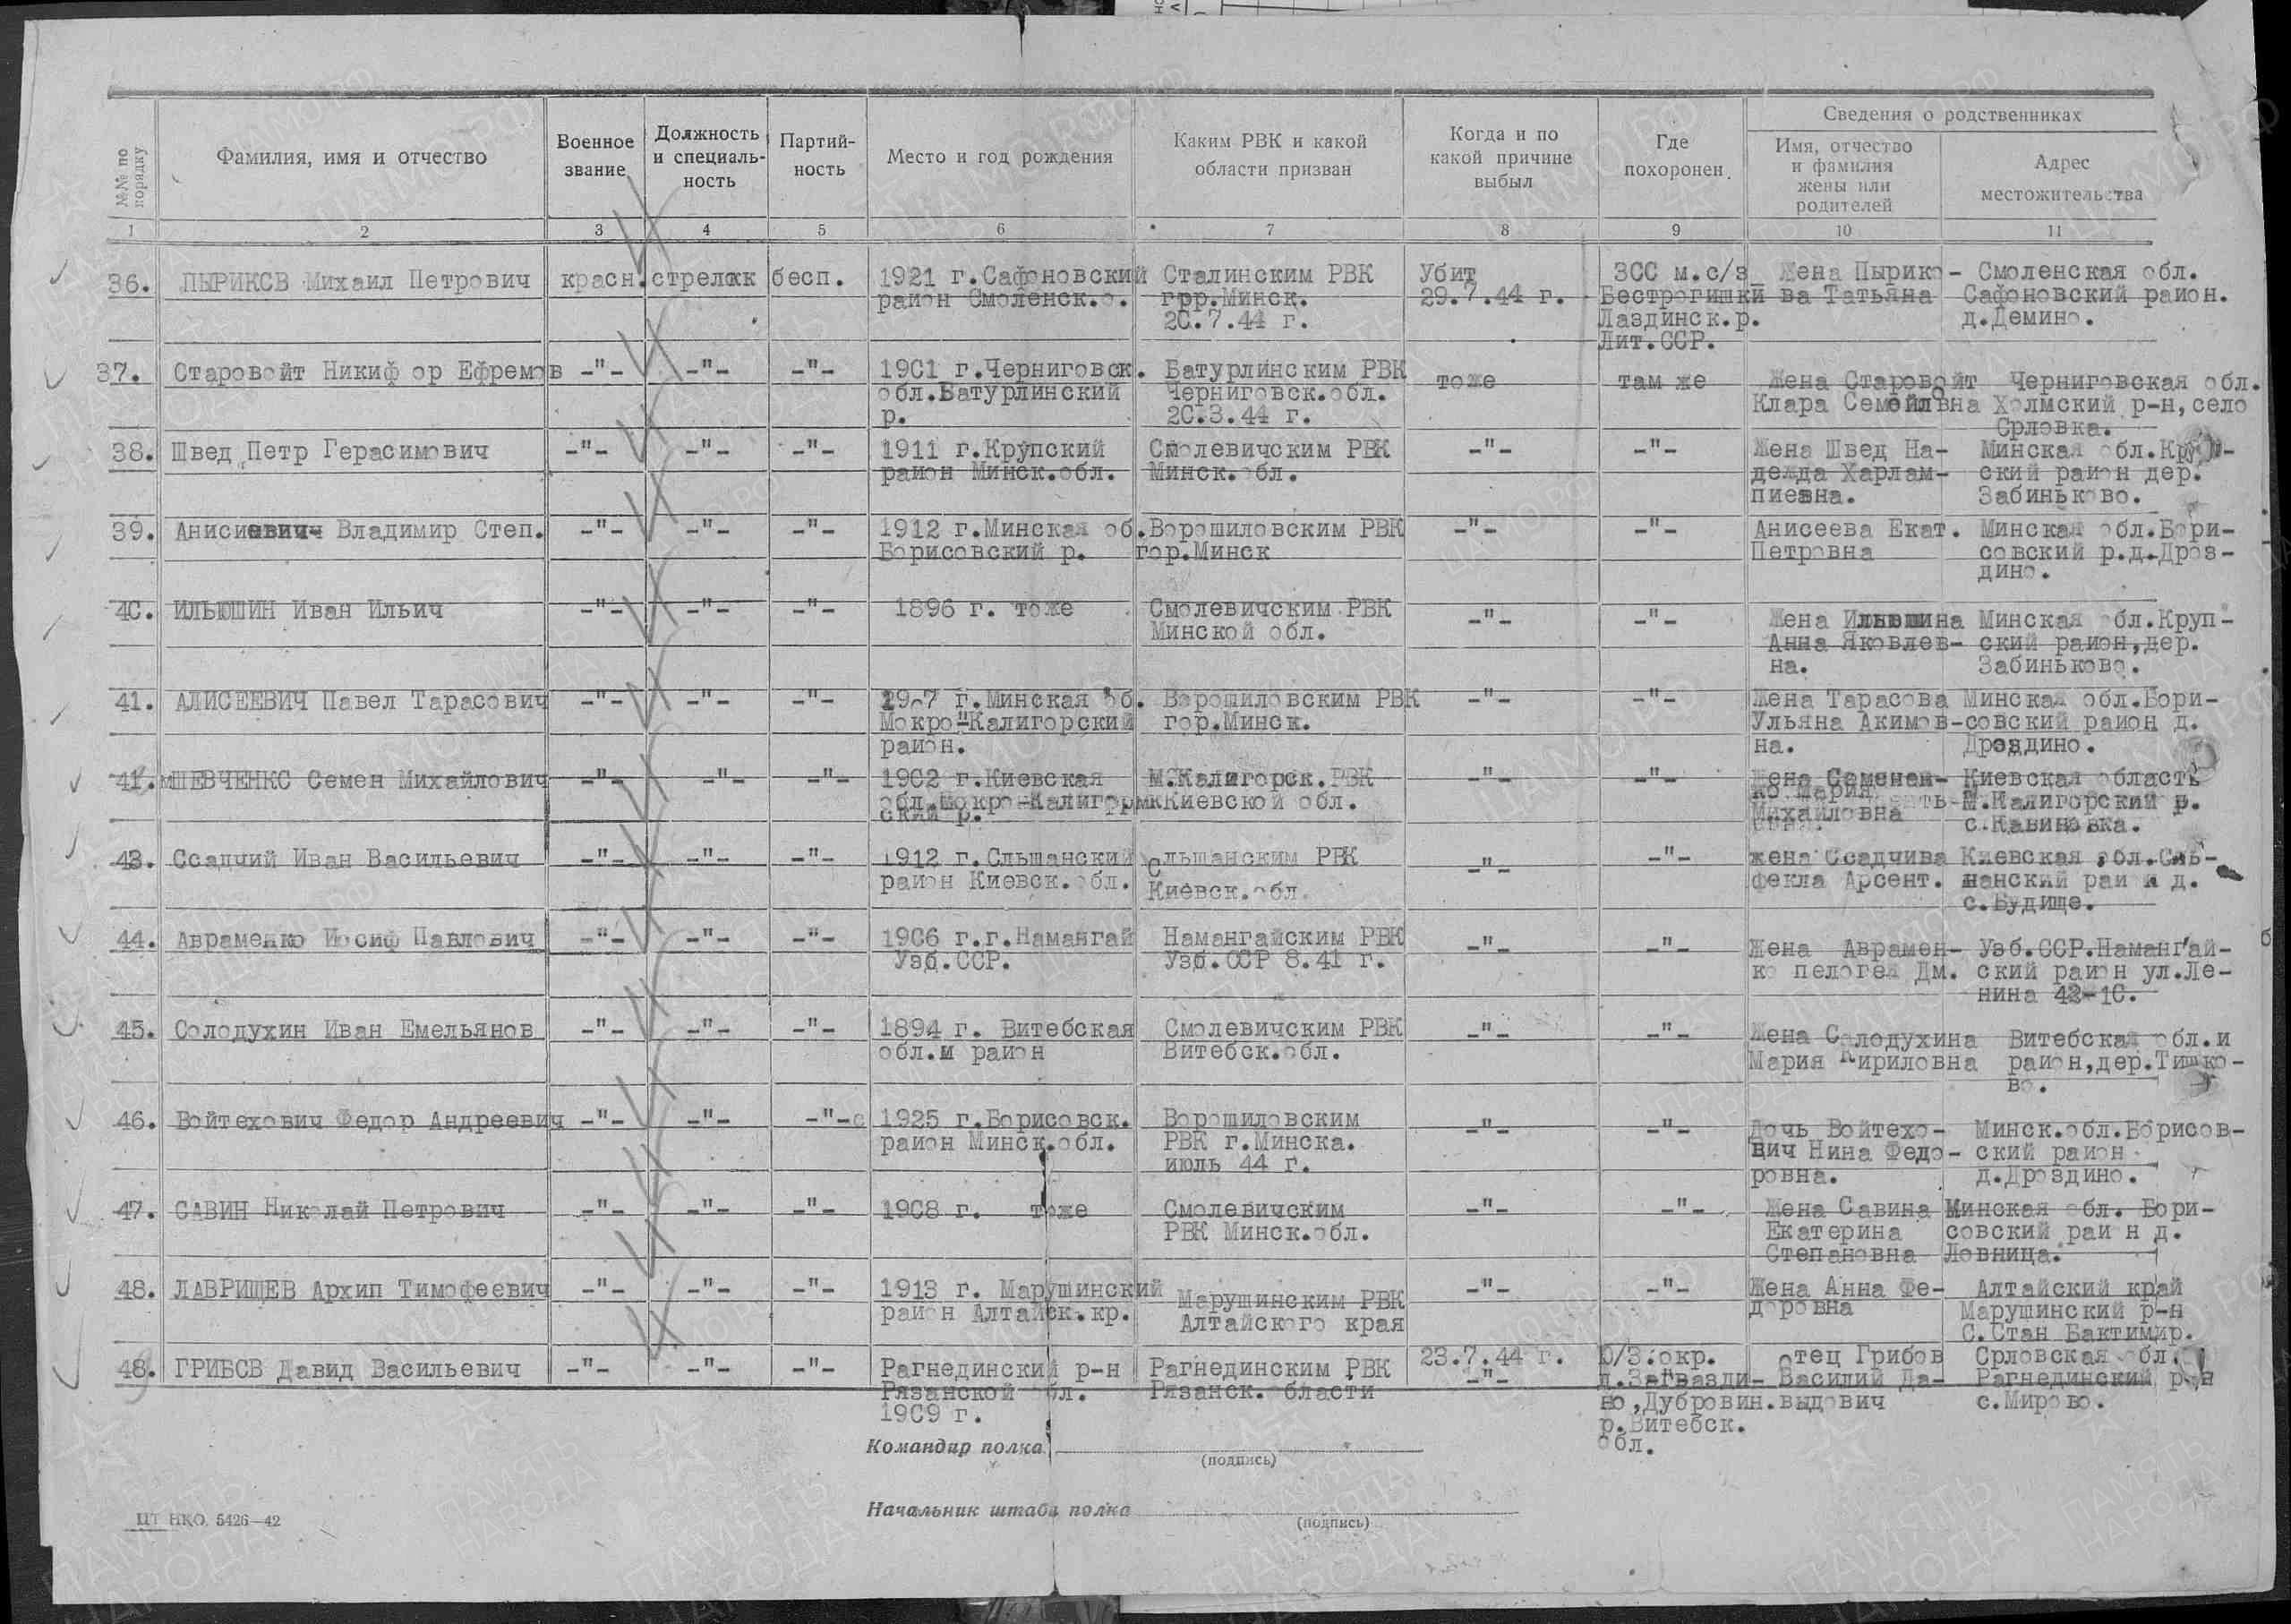 №№ по порядку
Фамилия, имя и отчество
Военное звание
Должность и специаль-ность
Партий-ность
Место и год рождения
Каким РВК и какой области призван
Когда и по какой причине выбыл
Где похоронен
Сведения о родственниках
Имя, отчество и фамилия жены или родителей
Адрес местожительства
1 2 3 4 5 6 7 8 9 10 11
36. ПЫРИКОВ Михаил Петрович красн. стрелок бесп. 1921 г.Сафоновский Сталинским РВК Убит ЗСС м.с/з Жена Пырико- Смоленская обл.
район Смоленск.о. гор.Минск. 29.7.44 г. Бестрогишки ва Татьяна Сафоновский район.
20.7.44 г. Лаздинск.р. д.Демино.
Лит.ССР.
37. Старовойт Никифор Ефремов -"- -"- -"- 1901 г.Черниговск. Батурлинским РВК тоже там же Жена Старовойт Черниговская обл.
обл.Батурлинский Черниговск.обл. Клара Семойловна Холмский р-н, село
р. 20.3.44 г. Орловка.
38. Швед Петр Герасимович -"- -"- -"- 1911 г.Крупский Смолевичским РВК -"- -"- Жена Швед На- Минская обл.Круп-
район Минск.обл. Минск.обл. дежда Харлам- ский район дер.
пиевна. Забиньково.
39. Анисиевич Владимир Степ. -"- -"- -"- 1912 г.Минская об. Ворошиловским РВК -"- -"- Анисеева Екат. Минская обл.Бори-
Борисовский р. гор.Минск Петровна совский р.д.Дроз-
дино.
40. ИЛЬЮШИН Иван Ильич -"- -"- -"- 1896 г. тоже Смолевичским РВК -"- -"- Жена Ильюшина Минская обл.Круп-
Минской обл. Анна Яковлев- ский район,дер.
на. Забиньково.
41. АЛИСЕЕВИЧ Павел Тарасович -"- -"- -"- 1907 г.Минская об. Ворошиловским РВК -"- -"- Жена Тарасова Минская обл.Бори-
Мокро-Калигорский гор.Минск. Ульяна Акимов- совский район д.
район. на. Дроздино.
41. ШЕВЧЕНКО Семен Михайлович -"- -"- -"- 1902 г.Киевская М.Калигорск.РВК -"- -"- Жена Семенен- Киевская область
обл.Мокро-Калигормк Киевской обл. ко Мария М.Калигорский р.
ский р. Михайловна с.Кавиновка.
43. Осадчий Иван Васильевич -"- -"- -"- 1912 г.Ольшанский Ольшанским РВК -"- -"- жена Осадчива Киевская обл.Оль-
район Киевск.обл. Киевск.обл. фекла Арсент. нанский район д.
с.Будище.
44. Авраменко Иосиф Павлович -"- -"- -"- 1906 г.г.Намангай Намангайским РВК -"- -"- Жена Аврамен- Узб.ССР.Намангай-
Узб.ССР. Узб.ССР 8.41 г. ко пелогея Дм. ский район ул.Ле-
нина 42-10.
45. Солодухин Иван Емельянов -"- -"- -"- 1894 г. Витебская Смолевичским РВК -"- -"- Жена Салодухина Витебская обл.и
обл.и район Витебск.обл. Мария Кириловна район,дер.Тишко-
во.
46. Войтехович Федор Андреевич -"- -"- -"- 1925 г.Борисовск. Ворошиловским -"- -"- Дочь Войтехо- Минск.обл.Борисов-
район Минск.обл. РВК г.Минска. вич Нина Федо- ский район
июль 44 г. ровна. д.Дроздино.
47. САВИН Николай Петрович -"- -"- -"- 1908 г. тоже Смолевичским -"- -"- Жена Савина Минская обл. Бори-
РВК Минск.обл. Екатерина совский район д.
Степановна Ловница.
48. ЛАВРИЩЕВ Архип Тимофеевич -"- -"- -"- 1913 г. Марушинский Марушинским РВК -"- -"- Жена Анна Фе- Алтайский край
район Алтайск.кр. Алтайского края доровна Марушинский р-н
С.Стан Бактимир.
48. ГРИБОВ Давид Васильевич -"- -"- -"- Рагнединский р-н Рагнединским РВК 23.7.44 г. Ю/З.окр. отец Грибов Орловская обл.
Рязанской обл. Рязанск.области -"- д.Загвазди- Василий Да- Рагнединский р-н
1909 г. но,Дубровин. выдович с.Мирово.
р.Витебск.
обл.
Командир полка
(подпись)
Начальник штаба полка
(подпись)
ЦТ НКО. 5426—42